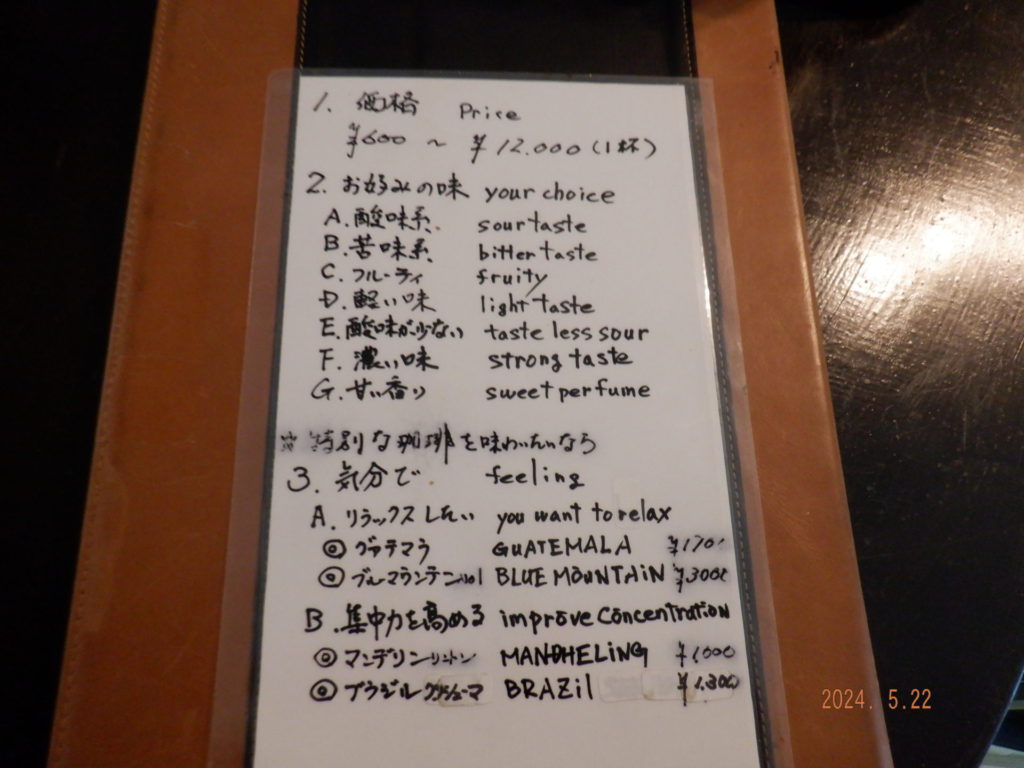 1. 価格 Price
¥600 ~ ¥12.000(1杯)
2. お好みの味 your choice
A. 酸味系 sour taste
B. 苦味系 bitter taste
C. フルーティ fruity
D. 軽い味 light taste
E. 酸味が少ない taste less sour
F. 濃い味 strong taste
G. 甘い香り sweet perfume
※ 特別な珈琲を味わいたいなら
3. 気分で feeling
A. リラックスしたい you want to relax
◎ グァテマラ GUATEMALA ¥1700
◎ ブルーマウンテン No1 BLUE MOUNTAIN ¥3000
B. 集中力を高める improve Concentration
◎ マンデリン リントン MANDHELING ¥1,000
◎ ブラジル BRAZil ¥1.300
2024. 5.22